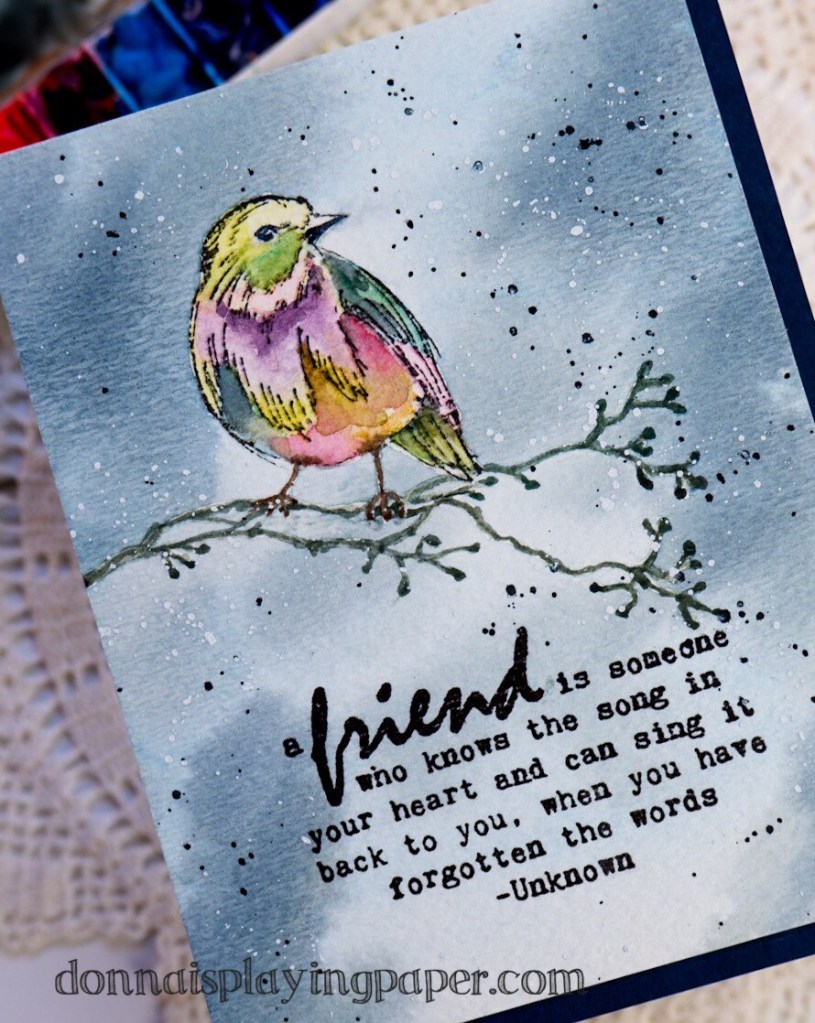 a friend is someone
who knows the song in
your heart and can sing it
back to you, when you have
forgotten the words
-Unknown
donnaisplayingpaper.com